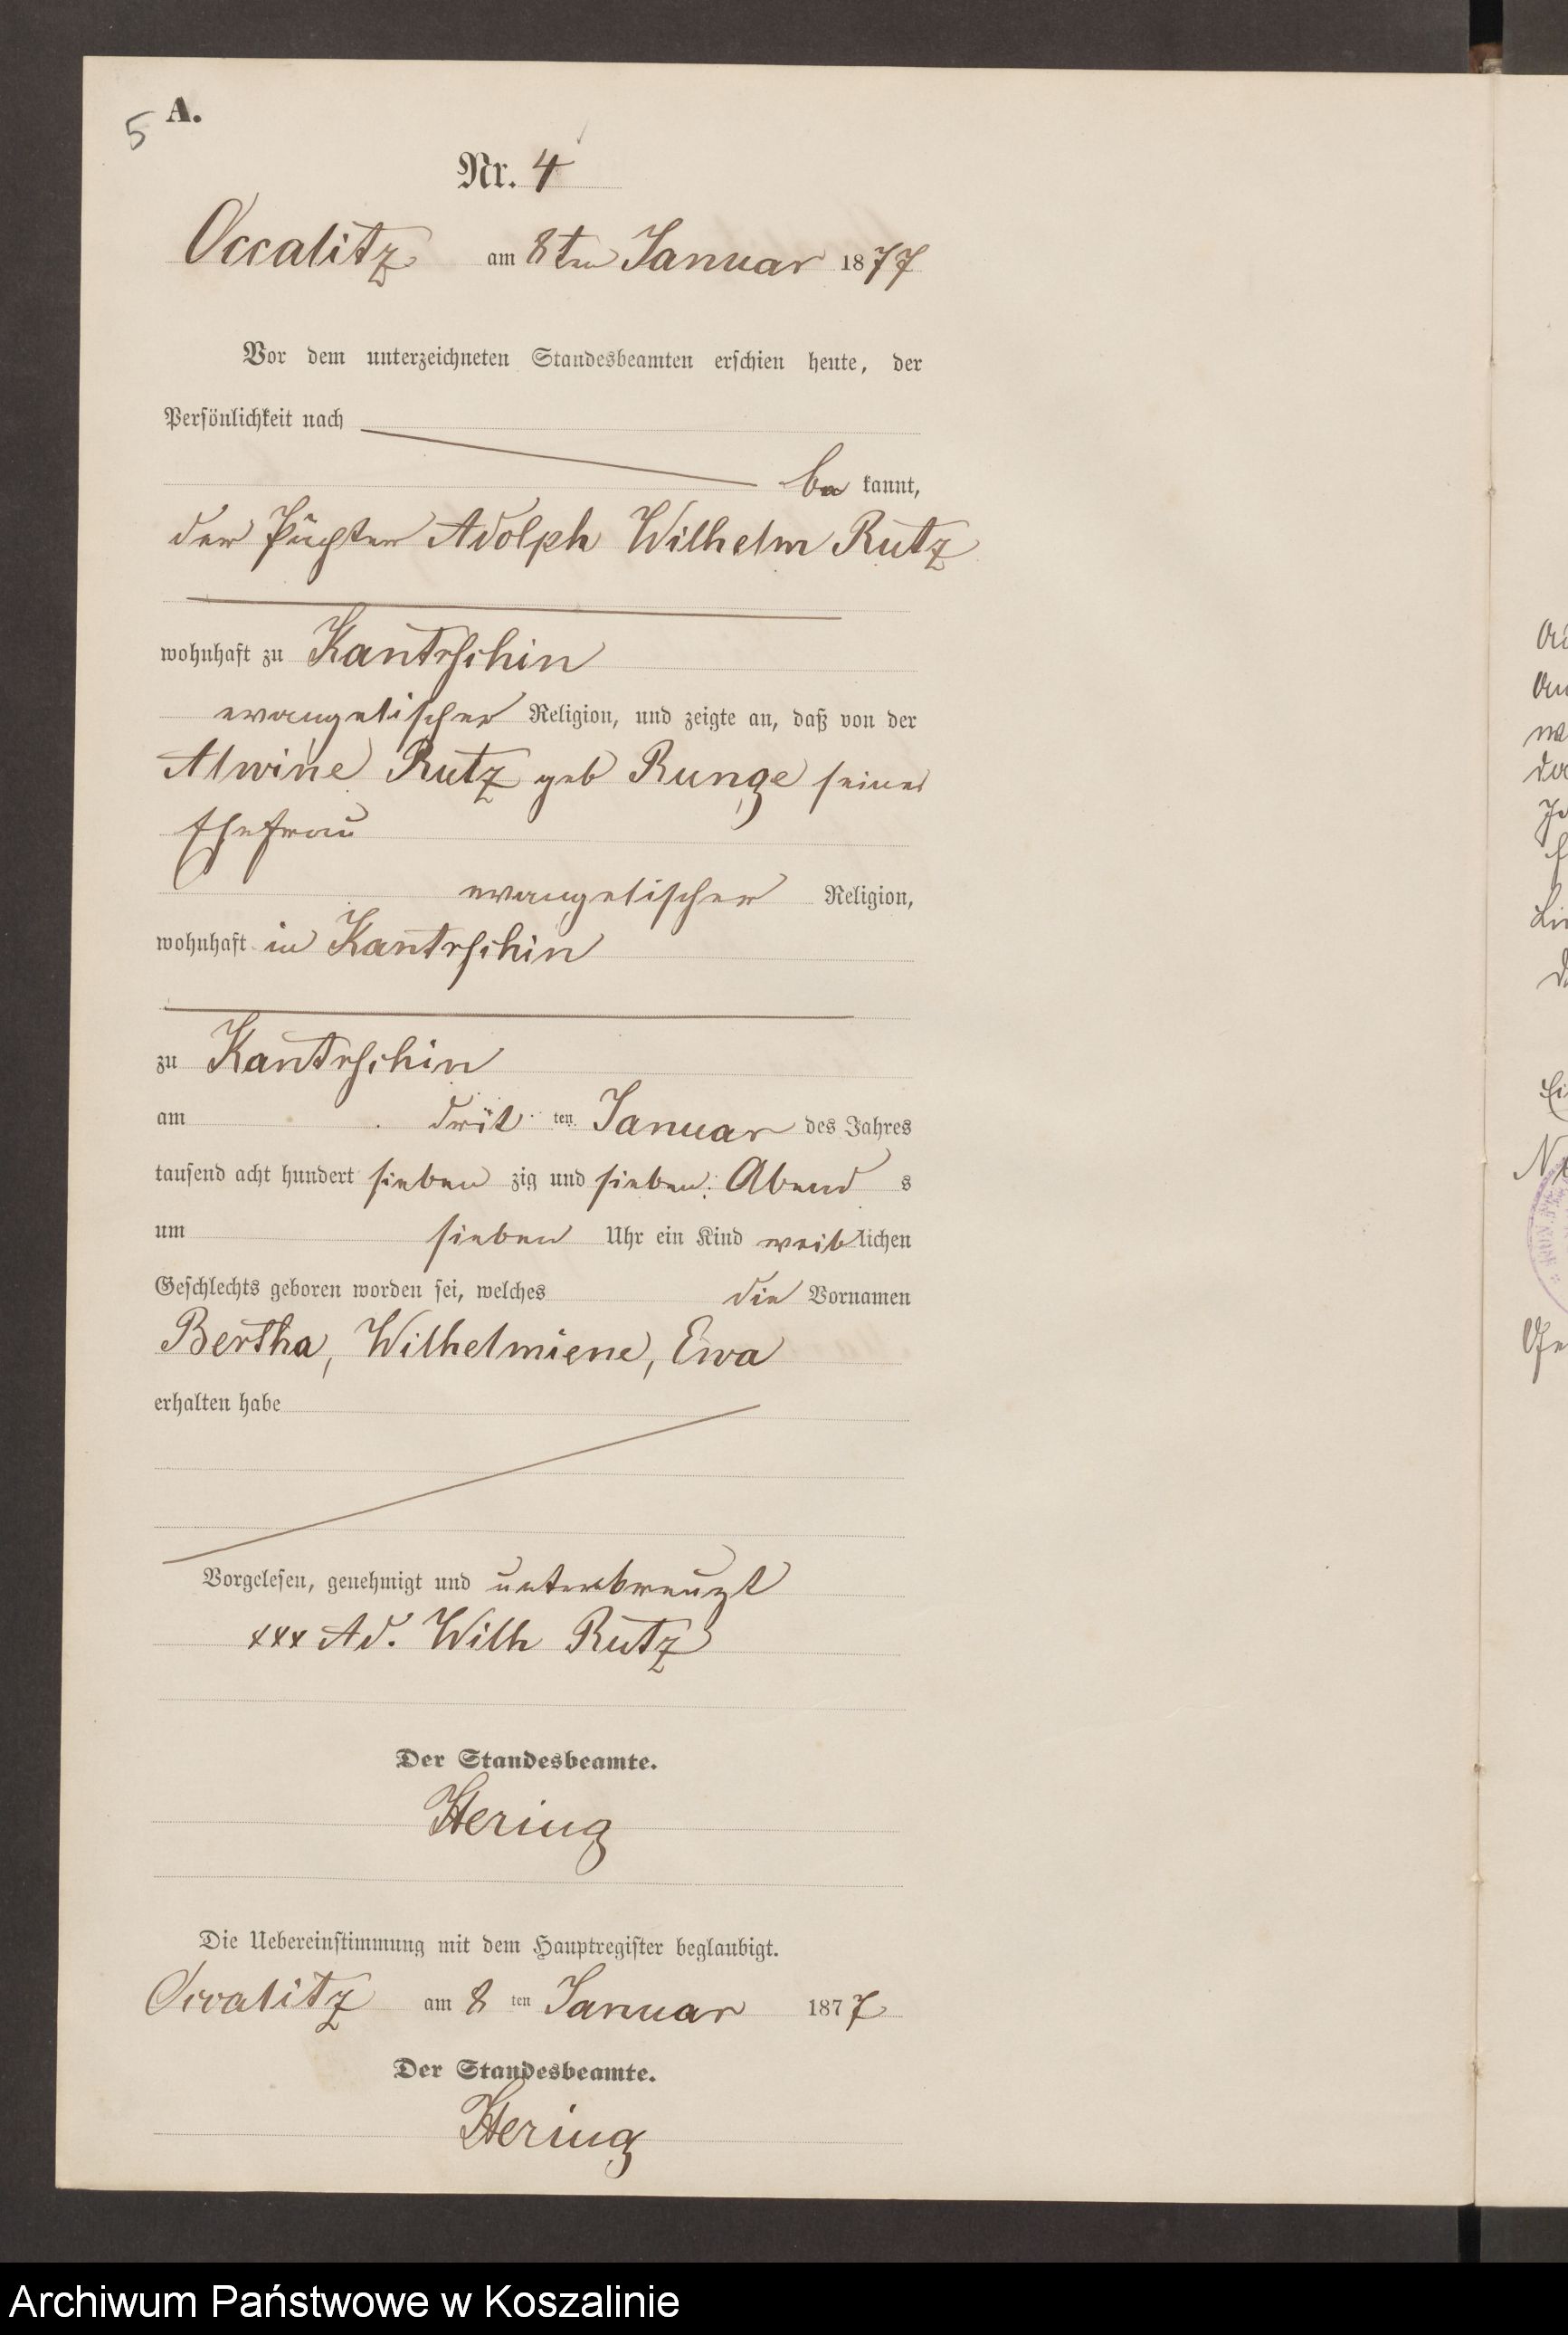 5 A.
Nr. 4
Occalitz am 8ten Januar 1877
Vor dem unterzeichneten Standesbeamten erschien heute, der
Persönlichkeit nach
be kannt,
der Pächter Adolph Wilhelm Rutz
wohnhaft zu Kantrschin
evangelischer Religion, und zeigte an, daß von der
Alwine Rutz geb Runge seiner
Ehefrau
evangelischer Religion,
wohnhaft in Kantrschin
zu Kantrschin
am drit ten Januar des Jahres
tausend acht hundert sieben zig und sieben Abend s
um sieben Uhr ein Kind weiblichen
Geschlechts geboren worden sei, welches die Vornamen
Bertha, Wilhelmiene, Ewa
erhalten habe
Vorgelesen, genehmigt und unterkreuzt
xxx Ad. Wilh Rutz
Der Standesbeamte.
Hering
Die Uebereinstimmung mit dem Hauptregister beglaubigt.
Occalitz am 8 ten Januar 1877
Der Standesbeamte.
Hering
Archiwum Państwowe w Koszalinie